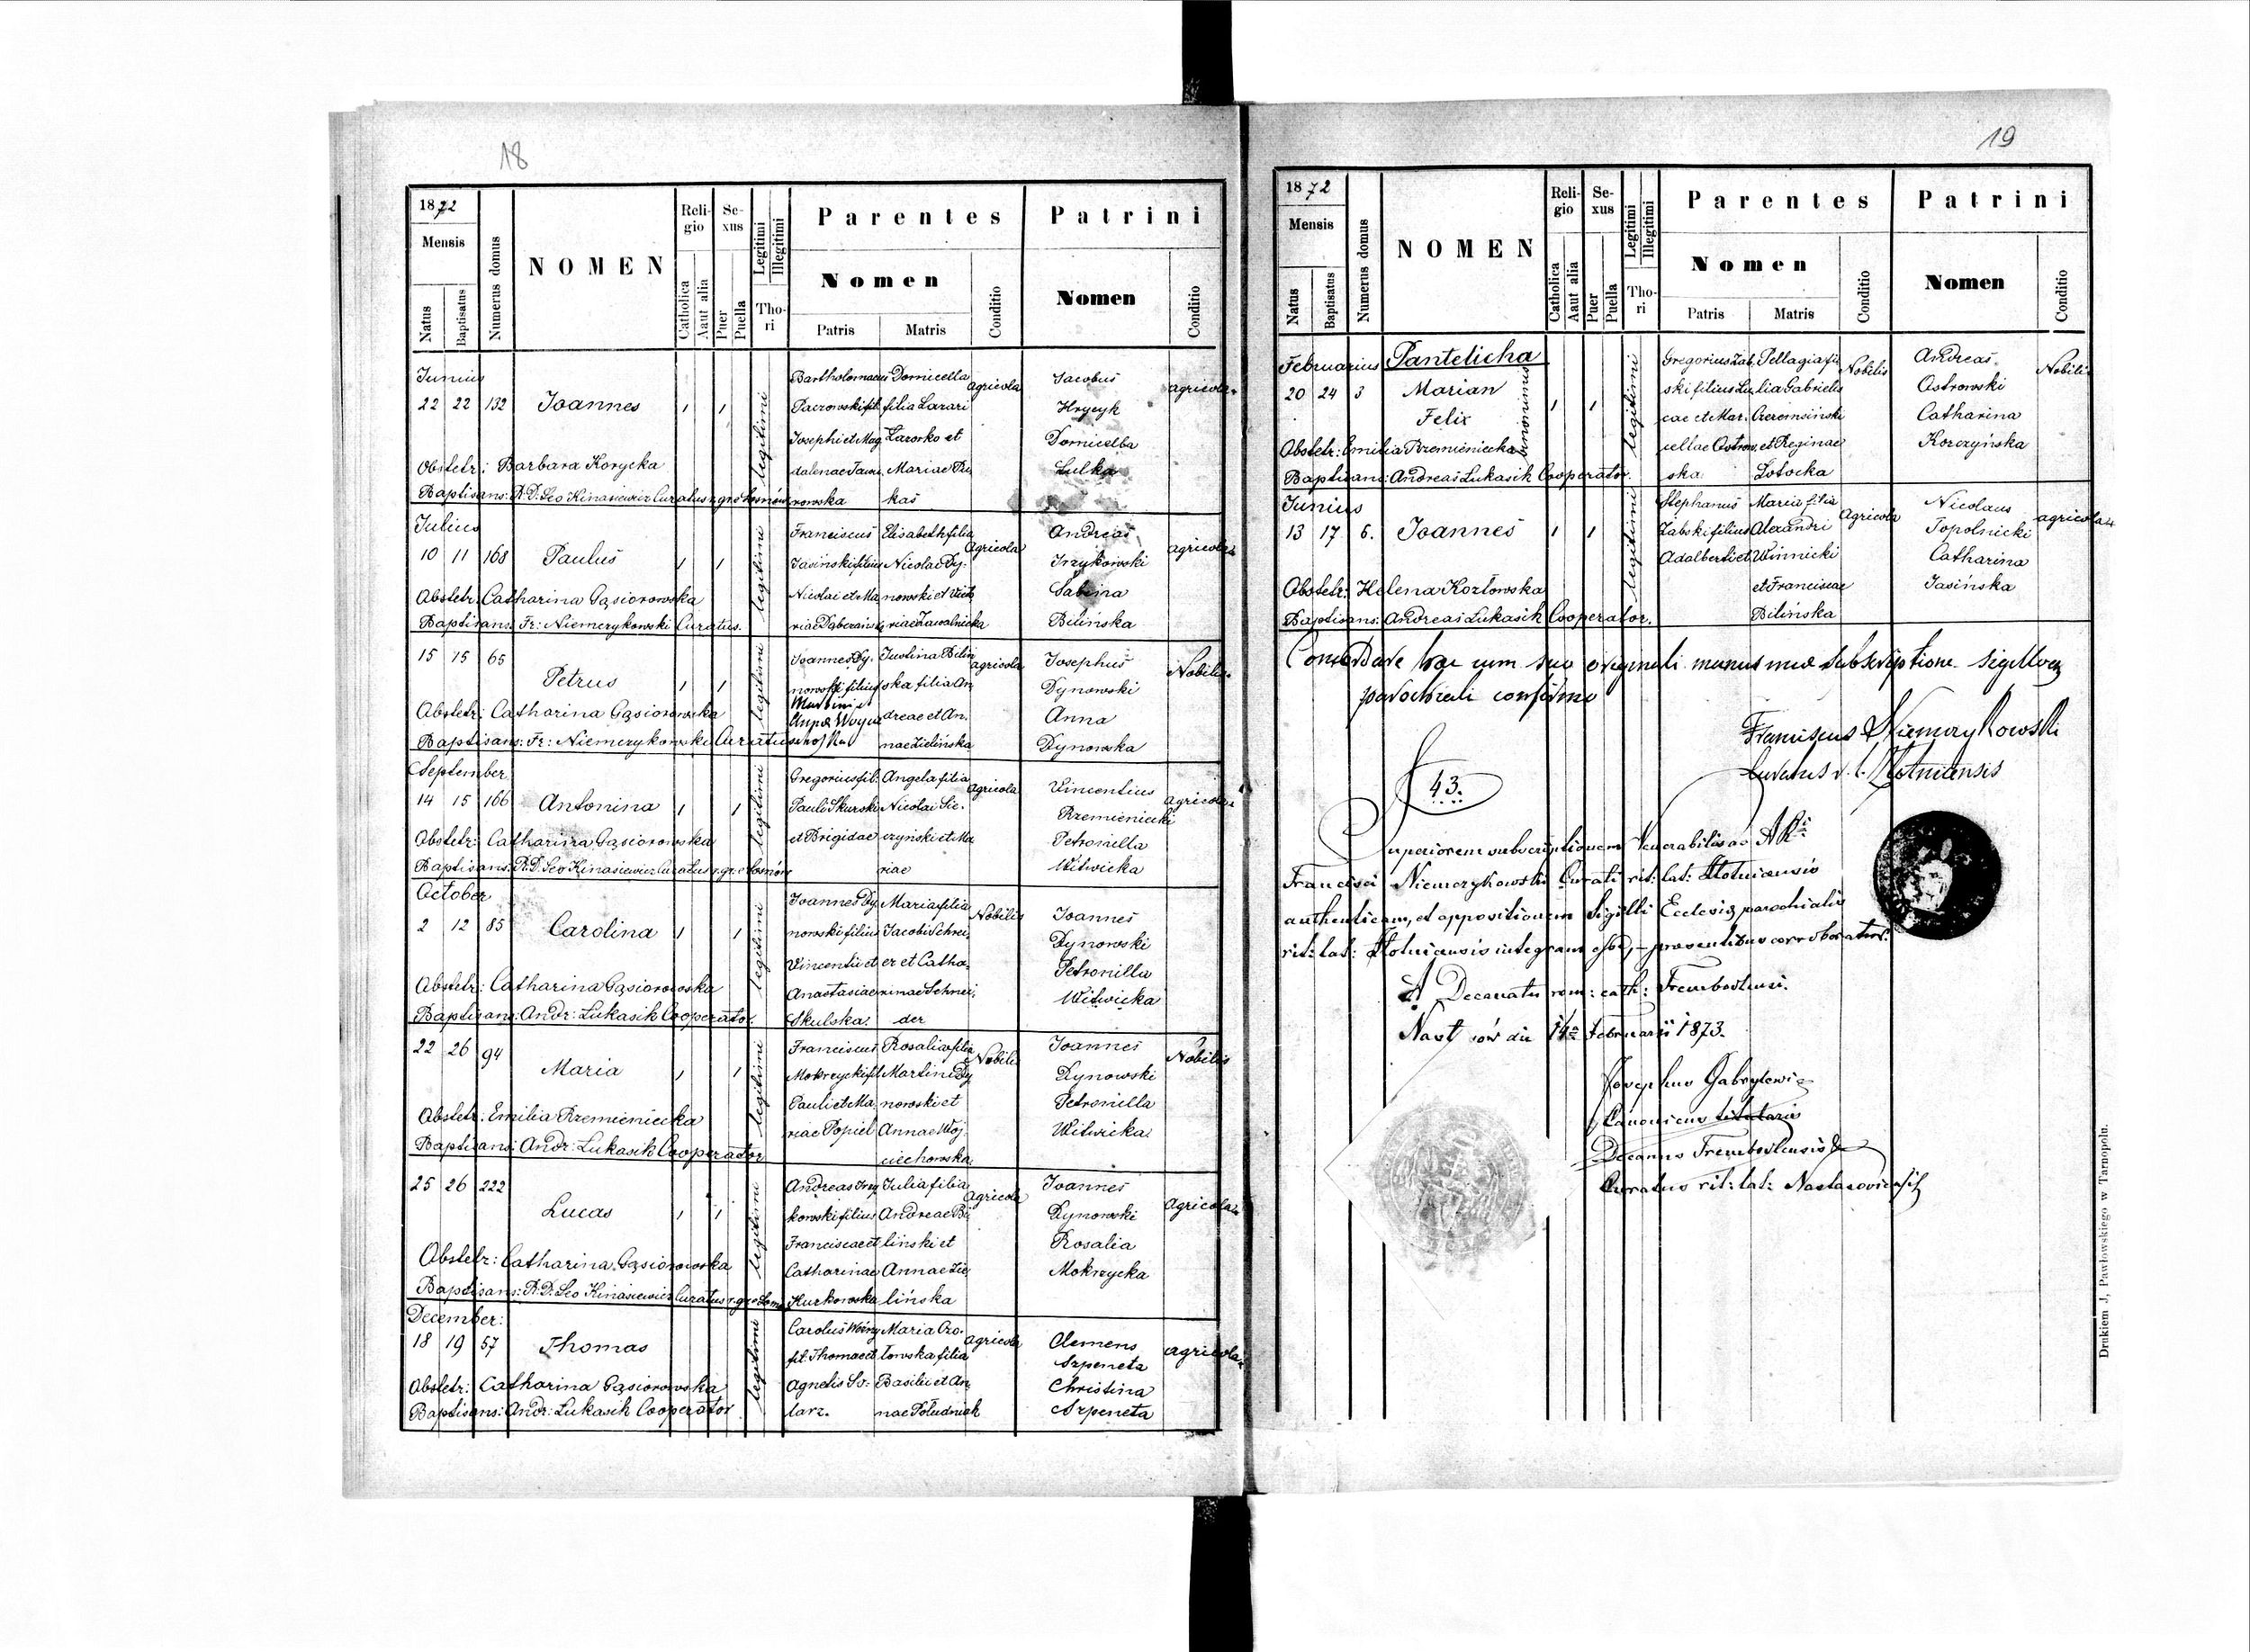 18
1872
Mensis
Natus
Baptisatus
Numerus domus
NOMEN
Religio
Catholica
Aaut alia
Sexus
Puer
Puella
Legitimi
Illegitimi
Thori
Parentes
Nomen
Patris
Matris
Conditio
Patrini
Nomen
Conditio
Junius
22 22 132 Joannes 1 1 legitimi
Bartholomaeus
Josephi et Mag
dalenae
rowska
Domicella
filia Lazari
Lazorko et
Mariae
kas
agricola
Jacobus
Hrycyk
Domicella
Lulka
agricolae
Obstetr: Barbara Korycka
Baptisans: R.D. Leo Kinasiewicz Curatus r.gr.
Julius
10 11 168 Paulus 1 1 legitimi
Franciscus
Jasinski filius
Nicolai et Ma
riae
Elisabeth filia
Nicolai Dy-
nowski et
riae Zawalnicka
Agricola
Andreas
Irzykowski
Sabina
Bilińska
agricolae
Obstetr: Catharina Gąsiorowska
Baptisans: Fr: Niemczykowski Curatus.
15 15 65 Petrus 1 1 legitimi
Joannes Dy-
nowski filius
Martini et
Annae
Justina Bilin
ska filia An
dreae et An-
nae Zielińska
agricola
Josephus
Dynowski
Anna
Dynowska
Nobiles
Obstetr: Catharina Gąsiorowska
Baptisans: Fr: Niemczykowski Curatus
September
14 15 166 Antonina 1 1 legitimi
Gregorius fil:
Pauli Skurski
et Brigidae
Angela filia
Nicolai Sie-
czyński et Ma
riae
agricola
Vincentius
Rzemieniecki
Petronilla
Witwicka
agricolae
Obstetr: Catharina Gąsiorowska
Baptisans: R.D. Leo Kinasiewicz Curatus r.gr.
October
2 12 85 Carolina 1 1 legitimi
Joannes Dy-
nowski filius
Vincentii et
Anastasiae
Skulska
Maria filia
Jacobi Schnei-
er et Catha-
rinae Schnei-
der
Nobilis
Joannes
Dynowski
Petronilla
Witwicka
Obstetr: Catharina Gąsiorowska
Baptisans: Andr: Lukasik Cooperator.
22 26 94 Maria 1 1 legitimi
Franciscus
Mokrzycki fil
Pauli et Ma-
riae Popiel
Rosalia filia
Martini Dy
nowski et
Annae Woj-
ciechowska
Nobilis
Joannes
Dynowski
Petronilla
Witwicka
Nobiles
Obstetr: Emilia Rzemieniecka
Baptisans: Andr: Lukasik Cooperator
25 26 222 Lucas 1 1 legitimi
Andreas Irzy
kowski filius
Francisci et
Catharinae
Kurkowska
Julia filia
Andreae Bi
linski et
Annae Zie
lińska
agricola
Joannes
Dynowski
Rosalia
Mokrzycka
Agricolae
Obstetr: Catharina Gąsiorowska
Baptisans: R.D. Leo Kinasiewicz Curatus r.gr.
December:
18 19 57 Thomas legitimi
Carolus Woźny
fil. Thomae et
Agnetis Sto-
larz.
Maria Ozo-
towska filia
Basilii et An
nae Południak
agricola
Clemens
Szpeneta
Christina
Szpeneta
agricolae
Obstetr: Catharina Gąsiorowska
Baptisans: Andr: Lukasik Cooperator
19
1872
Mensis
Natus
Baptisatus
Numerus domus
NOMEN
Religio
Catholica
Aaut alia
Sexus
Puer
Puella
Legitimi
Illegitimi
Thori
Parentes
Nomen
Patris
Matris
Conditio
Patrini
Nomen
Conditio
Februarius Pantelicha
20 24 3 Marian
Felix
binominis
1 1 legitimi
Gregorius Zab
ski filius Lu
cae et Mar-
cellae Ostrow
ska
Pellagia fi
lia Gabrielis
et Reginae
Lotocka
Nobilis
Andreas
Ostrowski
Catharina
Korczyńska
Nobiles
Obstetr: Emilia Rzemieniecka
Baptisans: Andreas Lukasik Cooperator.
Junius
13 17 6. Joannes 1 1 legitimi
Stephanus
Zabski filius
Adalberti et
Maria filia
Alexandri
Winnicki
et Franciscae
Bilińska
Agricola
Nicolaus
Topolnicki
Catharina
Jasińska
agricolae
Obstetr: Helena Kozłowska
Baptisans: Andreas Lukasik Cooperator.
Concordare hoc cum suo originali manus meae subscriptione sigilloq
parochiali confirmo
Franciscus Niemczykowski
Curatus r. l. Złotnicensis
43.
Superiorem subscriptionem Venerabilis ac
Francisci Niemczykowski Curati rit: lat: Złotnicensis
authenticam, et appositionem Sigilli Ecclesiae parochialis
rit: lat: Złotnicensis integram esse, praesentibus corroboratur.
A Decanatu rom: cath: Trembovlensi.
Nastasów die 14a Februarii 1873.
Josephus Gabrylewicz
Canonicus titularis
Decanus Trembovlensis &
Curatus rit: lat: Nastasoviensis
Drukiem J. Pawłowskiego w Tarnopolu.